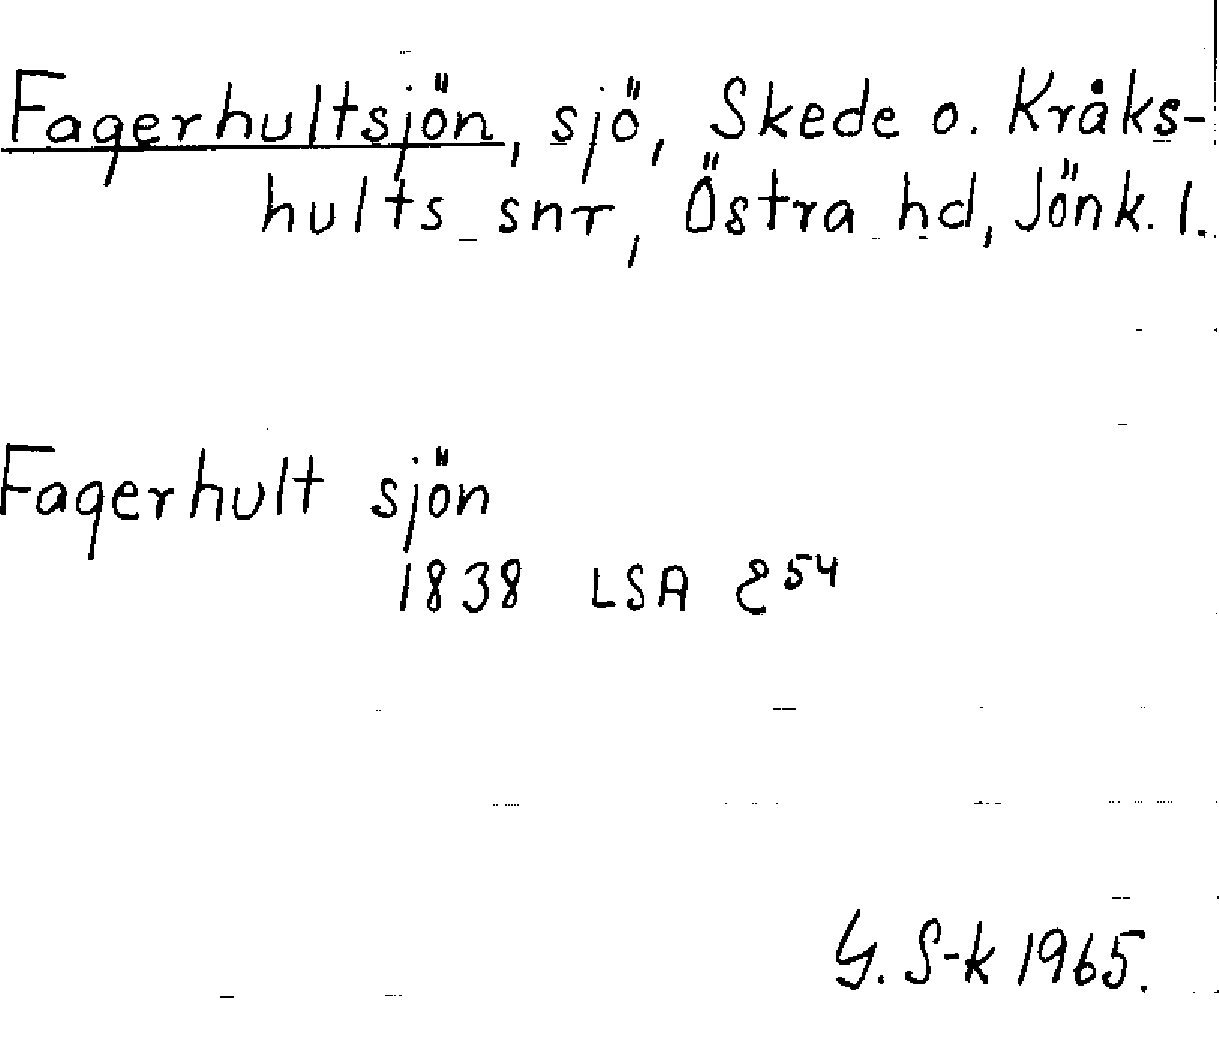 Fagerhultsjön, sjö, Skede o. Kråks-
hults snr, Östra hd, Jönk. l.
Fagerhult sjön
1838 LSA E 54
G. S-k 1965.